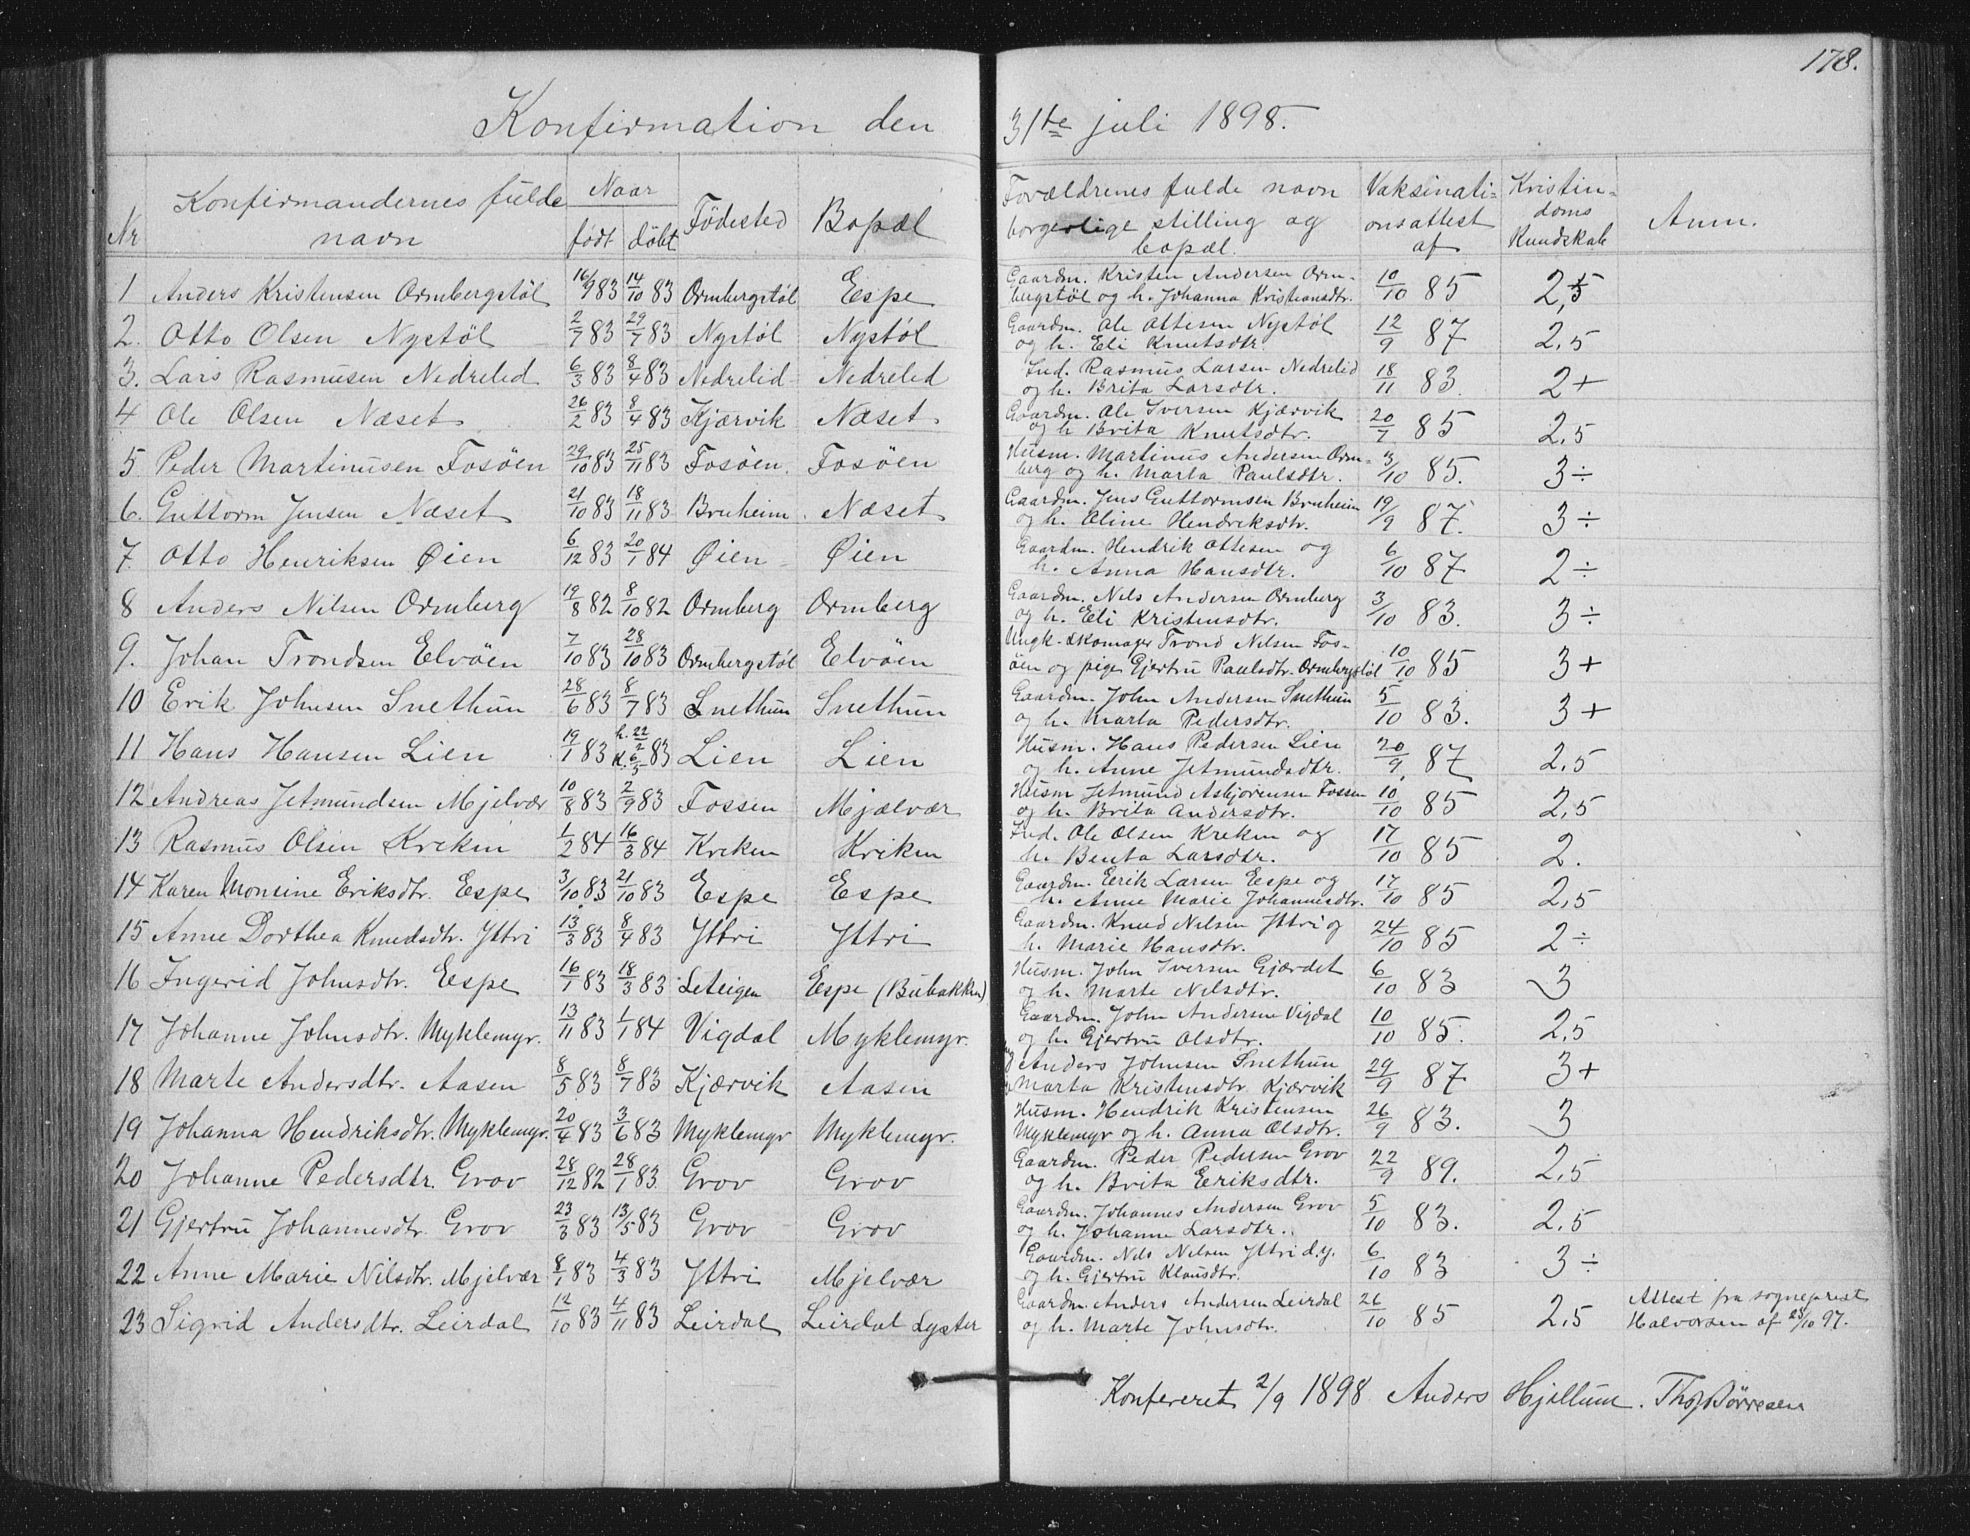 178.
Konfirmation den 31te juli 1898.
Nr Konfirmandernes fulde navn Naar født døbt Fødested Bopæl Forældrenes fulde navn borgerlige stilling og bopæl. Vaksinationsattest af Kristindoms Kundskab Anm.
1 Anders Kristensen Ormbergstøl 16/9 83 14/10 83 Ormbergstøl Espe Gaardm. Kristen Andersen Ormbergstøl og h. Johanna Kristiansdtr. 10/10 85 2,5
2. Otto Olsen Nystøl 2/7 83 29/7 83 Nystøl Nystøl Gaardm. Ole Ottesen Nystøl og h. Eli Knutsdtr. 12/9 87 2,5
3. Lars Rasmusen Nedrelid 6/3 83 8/4 83 Nedrelid Nedrelid Ind. Rasmus Larsen Nedrelid og h. Brita Larsdtr. 18/11 83. 2+
4 Ole Olsen Næset 26/2 83 8/4 83 Kjærvik Næset. Gaardm. Ole Iversen Kjærvik og h Brita Knutsdtr. 20/7 85 2,5
5 Peder Martinusen Fosøen 29/10 83 25/11 83 Fosøen. Fosøen Husm. Martinus Andersen Ormberg og h. Marta Paulsdtr. 3/10 85. 3÷
6. Guttorm Jensen Næset 21/10 83 18/11 83 Bruheim. Næset Gaardm. Jens Guttormsen Bruheim og h. Oline Hendriksdtr. 19/9 87. 3÷
7. Otto Henriksen Øien 6/12 83 20/1 84 Øien Øien Gaardm. Hendrik Ottesen og h. Anna Hansdtr. 6/10 87 2÷
8 Anders Nilsen Ormberg 19/8 82 8/10 82 Ormberg Ormberg Gaardm. Nels Andersen Ormberg og h. Eli Kristensdtr. 3/10 83. 3÷
9. Johan Trondsen Elvøen 7/10 83 28/10 83 Ormbergstøl Elvøen Ungk. Skomager Trond Nilsen Fosøen og pige Gjertru Paulsdtr. Ormbergstøl 10/10 85 3+
10 Erik Johnsen Snethun 28/6 83 8/7 83 Snethun Snethun Gaardm. John Andersen Snethun og h. Marta Pedersdtr. 5/10 83. 3+
11 Hans Hansen Lien 19/1 83 h. 22/2 k. 6/5 83 Lien Lien Husm. Hans Pedersen Lien og h. Anne Jetmundsdtr. 20/9 87 2,5
12 Andreas Jetmundsen Mjelvær 10/8 83 2/9 83 Fossen Mjælvær Husm Jetmund Asbjørensen Fossen og h. Brita Andersdtr. 10/10 85 2,5
13 Rasmus Olsen Kreken 1/2 84 16/3 84 Kreken Kreken Ind. Ole Olsen Kreken og h. Benta Larsdtr. 17/10 85 2.
14 Karen Monsine Eriksdtr. Espe 3/10 83 21/10 83 Espe Espe Gaardm. Eerik Larsen Espe og h. Anne Marie Johannesdtr. 17/10 85 2,5
15 Anne Dorthea Knudsdtr. Yttri 13/3 83 8/4 83 Yttri Yttri Gaardm. Knud Nilsen Yttri og h. Marie Hansdtr. 24/10 85 2÷
16 Ingerid Johnsdtr. Espe 16/1 83 18/3 83 Leteigen Espe (Bubakken) Husm. John Iversen Gjærdet og h. Marte Nelsdtr. 6/10 83 3
17 Johanne Johnsdtr. Myklemyr. 13/11 83 1/1 84 Vigdal Myklemyr. Gaardm. John Andersen Vigdal og h. Gjertru Olsdtr. 10/10 85. 2,5
18 Marte Andersdtr. Aasen 8/5 83 8/7 83 Kjærvik Aasen Anders Johnsen Snethun Marta Kristensdtr Kjærvik 29/9 87 3+
19 Johanna Hendriksdtr. Myklemyr. 20/4 83 3/6 83 Myklemyr Myklemyr. Husm. Hendrik Kristensen Myklemyr og h. Anna Olsdtr. 26/9 83. 3
20 Johanne Pedersdtr. Grov 28/12 82 28/1 83. Grov Grov Gaardm. Peder Pedersen Grov og h. Brita Eeriksdtr. 22/9 89. 2,5
21 Gjertru Johannesdtr. Grov 23/3 83 13/5 83 Grov Grov Gaardm. Johannes Andersen Grov og h. Johanne Larsdtr. 5/10 83. 2,5
22 Anne Marie Nilsdtr. Mjelvær 8/1 83 4/3 83 Yttri Mjelvær Gaardm. Nels Nelsen Yttri d.y. og h. Gjertru Klausdtr. 6/10 83 3÷
23 Sigrid Andersdtr. Leirdal 12/10 83 4/11 83 Leirdal Leirdal Lyster Gaardm. Anders Andersen Leirdal og h. Marte Johnsdtr. 26/10 85 2,5 Attest fra sogneprest Halvorsen af 28/10 97.
Konfereret 2/9 1898 Anders Hjellum. Th. Børresen